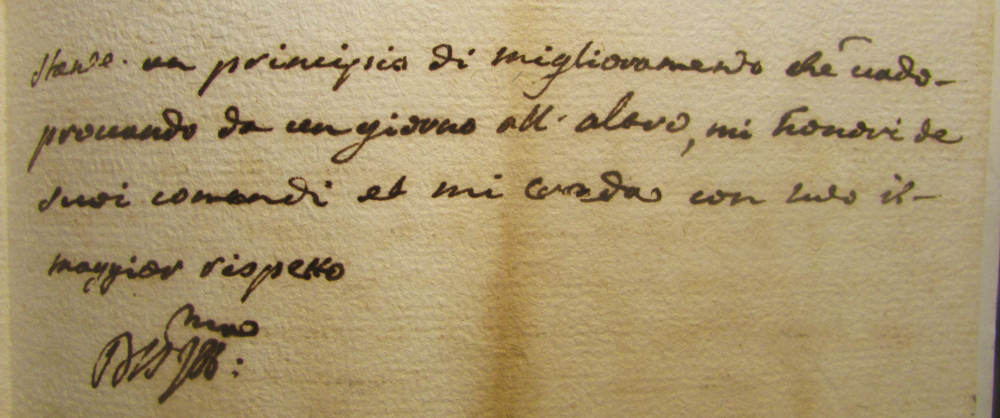 stante un principio di miglioramento che vado
provando da un giorno all' altro, mi honori de
suoi comandi et mi creda con tutto il
maggior rispetto